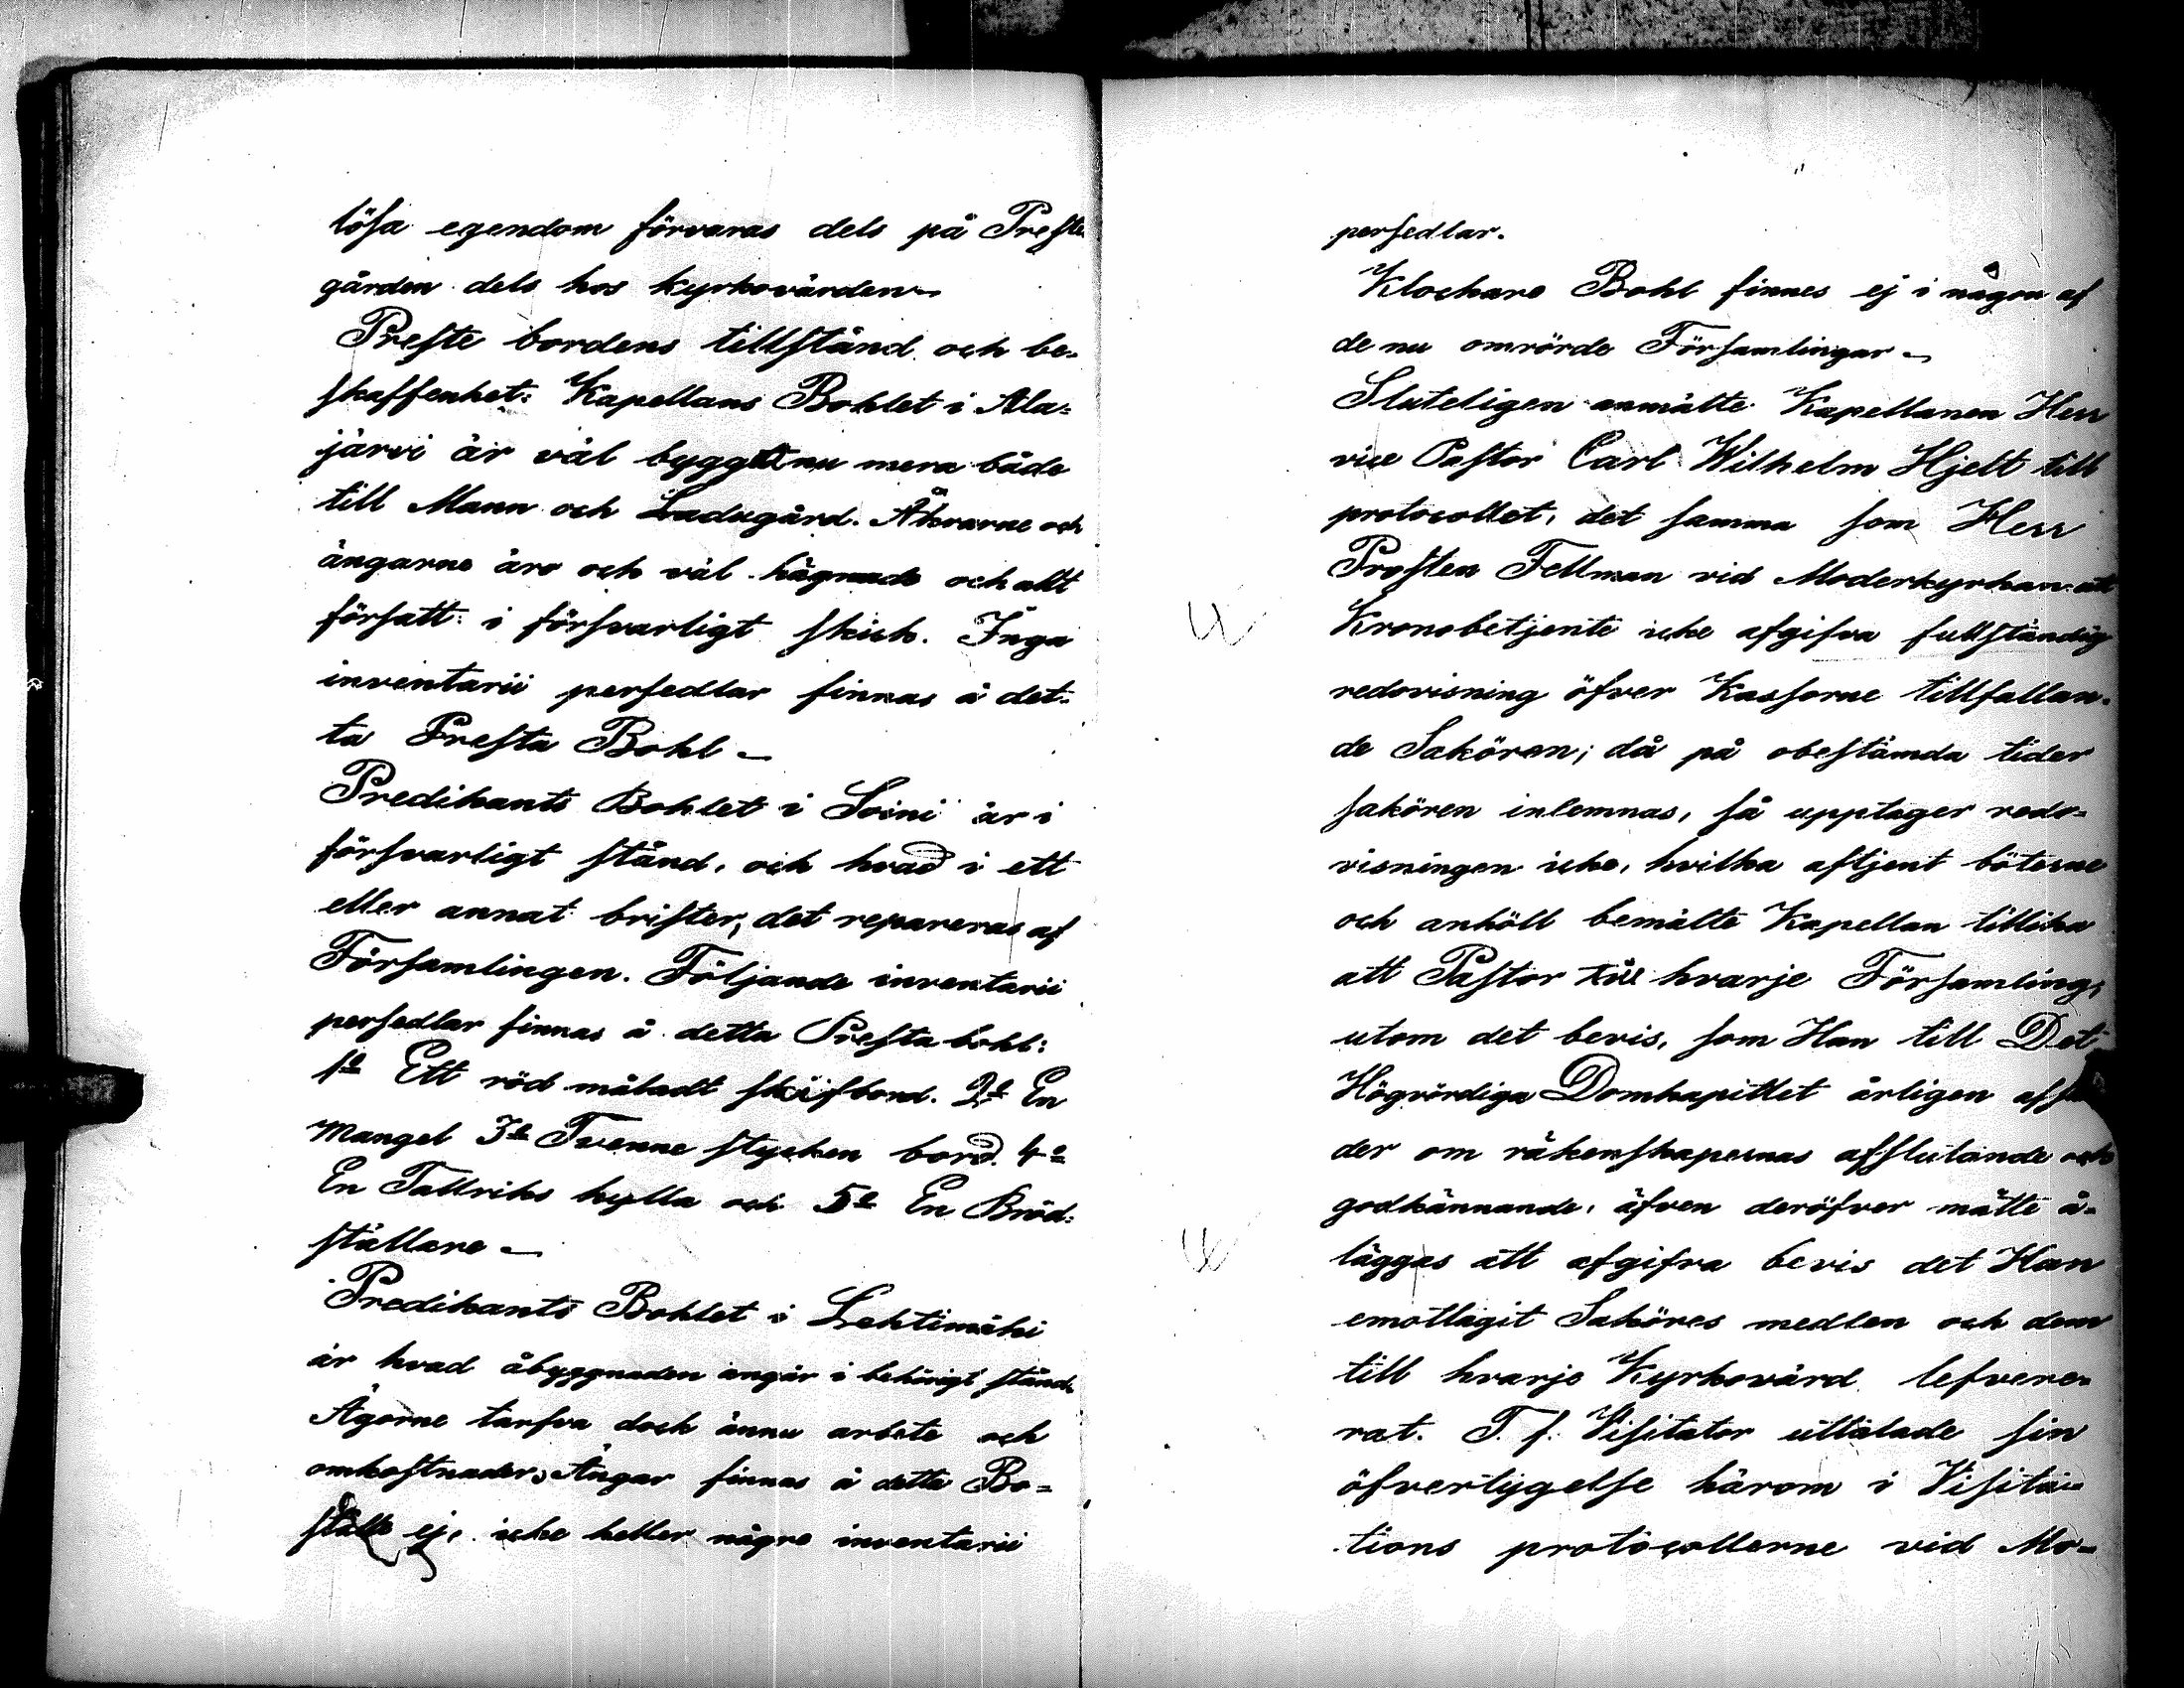 lösa egendom förvaras dels på Preste
gården dels hos kyrkovärden
Preste bordens tillstånd och be-
skaffenhet: Kapellans Bohlet i Ala-
järvi är väl byggdt nu mera både
till Mann och Ladugård. Åkrarne och
ängarne äro och väl hägnade och allt
försatt i försvarligt skick. Inga
inventarii persedlar finnas å det-
ta Presta Bohl
Predikants Bohlet i Soini är i
försvarligt stånd, och hvad i ett
eller annat brister, det repareras af
Församlingen. Följande inventarii
persedlar finnas å detta Presta bohl:
1o Ett röd måladt skifbord. 2o En
Mangel 3o Tvenne stycken bord. 4o
En Tallriks hylla och 5o En Bröd-
ställare
Predikants Bohlet i Lehtimäki
är hvad åbyggnaden angår i behörigt stånd
Ägorne tarfva dock ännu arbete och
omkostnader, Ängar finnas å detta Bo-
ställe ej, icke heller någre inventarii
persedlar.
Klockare Bohl finnes ej i någon af
de nu omrörde Församlingar
Sluteligen anmälte Kapellanen Herr
vice Pastor Carl Wilhelm Hjelt till
protocollet, det samma som Herr
Prosten Fellman vid Moderkyrkan att
Kronobetjente icke afgifva fullständig
redovisning öfver Kassorne tillfallan-
de Saköron; då på obestämda tider
saköron inlemnas, så upptager redo-
visningen icke, hvilka aftjent böterne
och anhöll bemälte Kapellan tillika
att Pastor till hvarje Församling,
utom det bevis, som Han till Det
Högvördiga Domkapitlet årligen afsän
der om räkenskapernas afslutande och
godkännande, äfven deröfver måtte å-
läggas att afgifva bevis det Han
emottagit Saköres medlen och dem
till hvarje Kyrkovärd lefvere-
rat. T. f. Visitator uttalade sin
öfvertygelse härom i Visita-
tions protocollerne vid Mo-